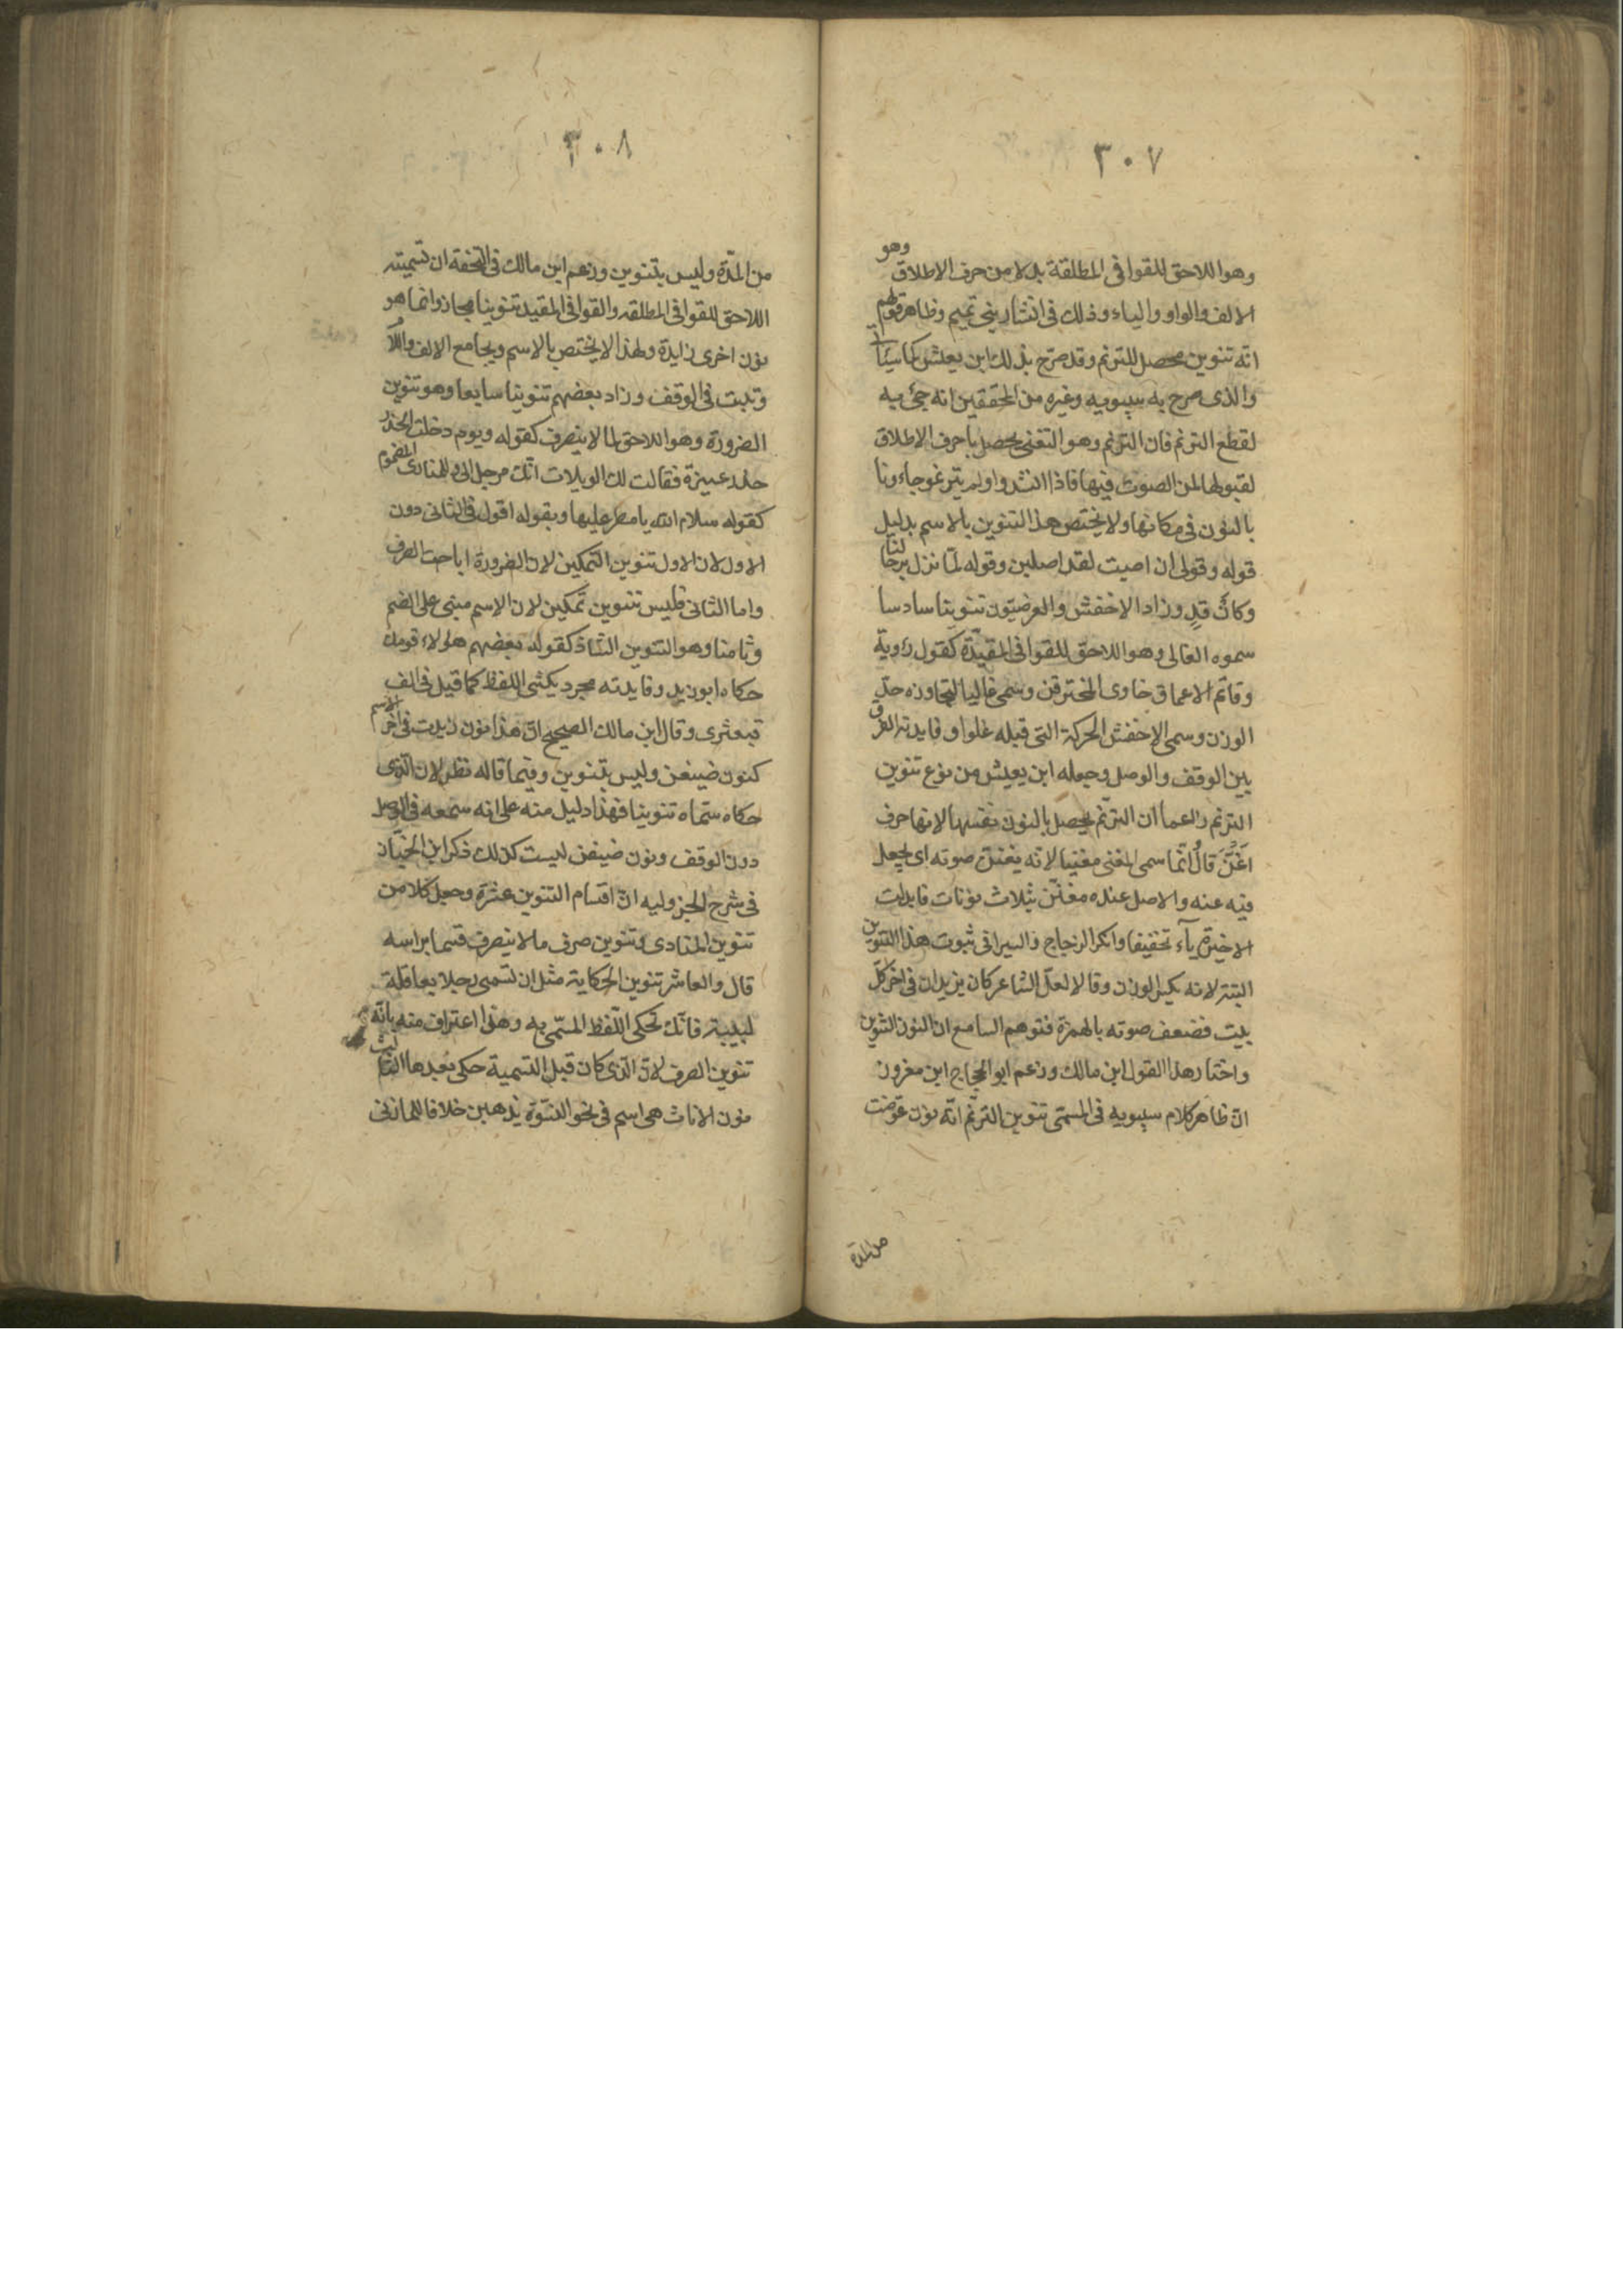 ٣٠٧
وهو
وهو اللاحق للقوافى المطلقة بدلا من حرف الاطلاق
الالف والواو والياء وذلك فى انشاد بنى تميم وظاهر قولهم
انه تنوين محصل للترنم وقد صرح بذلك ابن يعيش كما سيأتى
والذى صرح به سيبويه وغيره من المحققين انه جئ به
لقطع الترنم فان الترنم وهو التغنى يحصل باحرف الاطلاق
لقبولها لمد الصوت فيها فاذا انشدوا ولم يترنموا جاءوا
بالنون فى مكانها ولا يختص هذا التنوين بالاسم بدليل
قوله وقولى ان اصبت لقد اصابن وقوله لمّا تزل برحالنا
وكأن قدٍ وزاد الاخفش والعروضيون تنوينا سادسا
سموه الغالى وهو اللاحق للقوافى المقيّدة كقول رؤبة
وقاتم الاعماق خاوى المخترقن وسمى غاليا لتجاوزه حدّ
الوزن وسمى الاخفش الحركة التى قبله غلوا وفايدته الفرق
بين الوقف والوصل وجعله ابن يعيش من نوع تنوين
الترنم زاعما ان الترنّم يحصل بالنون نفسها لانها حرف
اغنّ قال انّما سمى المغنى مغنيا لانه يغنن صوته اى يجعل
فيه غنه والاصل عنده مغنّن بثلاث نونات فابدلت
الاخيرة ياء تخفيفا وانكر الزجاج والسيرافى ثبوت هذا التنوين
البتة لانه يكسر الوزن وقالا لعلّ الشاعر كان يزيد ان فى اخر كلّ
بيت فضعف صوته بالهمزة فتوهم السامع ان النون التنوين
واختار هذا القول ابن مالك وزعم ابو الحجاج ابن معزوز
انّ ظاهر كلام سيبويه فى المسمّى تنوين الترنّم انّه نون عوّضت
من المدة
٣٠٨
من المدّة وليس بتنوين وزعم ابن مالك فى التحفة ان تسميته
اللاحق للقوافى المطلقه والقوافى المقيد تنوينا مجاز وانما هو
نون اخرى زايدة ولهذا لا يختص بالاسم ويجامع الالف واللام
وتثبت فى الوقف وزاد بعضهم تنوينا سابعا وهو تنوين
الضرورة وهو اللاحق لما لا ينصرف كقوله ويوم دخلت الخدر
خدر عنيزة فقالت لك الويلات انّك مرجلى والمنادى المضموم
كقوله سلام الله يا مطر عليها وبقوله اقول فى الثانى دون
الاول لان الاول تنوين التمكين لان الضرورة اباحت الصرف
واما الثانى فليس تنوين تمكين لان الاسم مبنى على الضم
وثامنا وهو التنوين الشاذ كقوله بعضهم هؤلاء قومك
حكاه ابو زيد وفايدته مجرد تكثير اللفظ كما قيل فى الف
قبعثرى وقال ابن مالك الصحيح انّ هذا نون زيدت فى اخر الاسم
كنون ضيفن وليس بتنوين وفيما قاله نظر لان الذى
حكاه سمّاه تنوينا فهذا دليل منه على انه سمعه فى الوصل
دون الوقف ونون ضيفن ليست كذلك ذكر ابن الخبّاز
فى شرح الجزوليه انّ اقسام التنوين عشرة وجعل كلا من
تنوين المنادى وتنوين صرف ما لا ينصرف قسما براسه
قال والعاشر تنوين الحكاية مثل ان تسمى رجلا بعاقلة
لبيبة فانّك تحكى اللّفظ المسّمى به وهذا اعتراف منه بانّه
تنوين الصرف لانّ الذى كان قبل التسمية حكى بعدها الثالث
نون الاناث هى اسم فى نحو النسوة يذهبن خلافا للمازنى